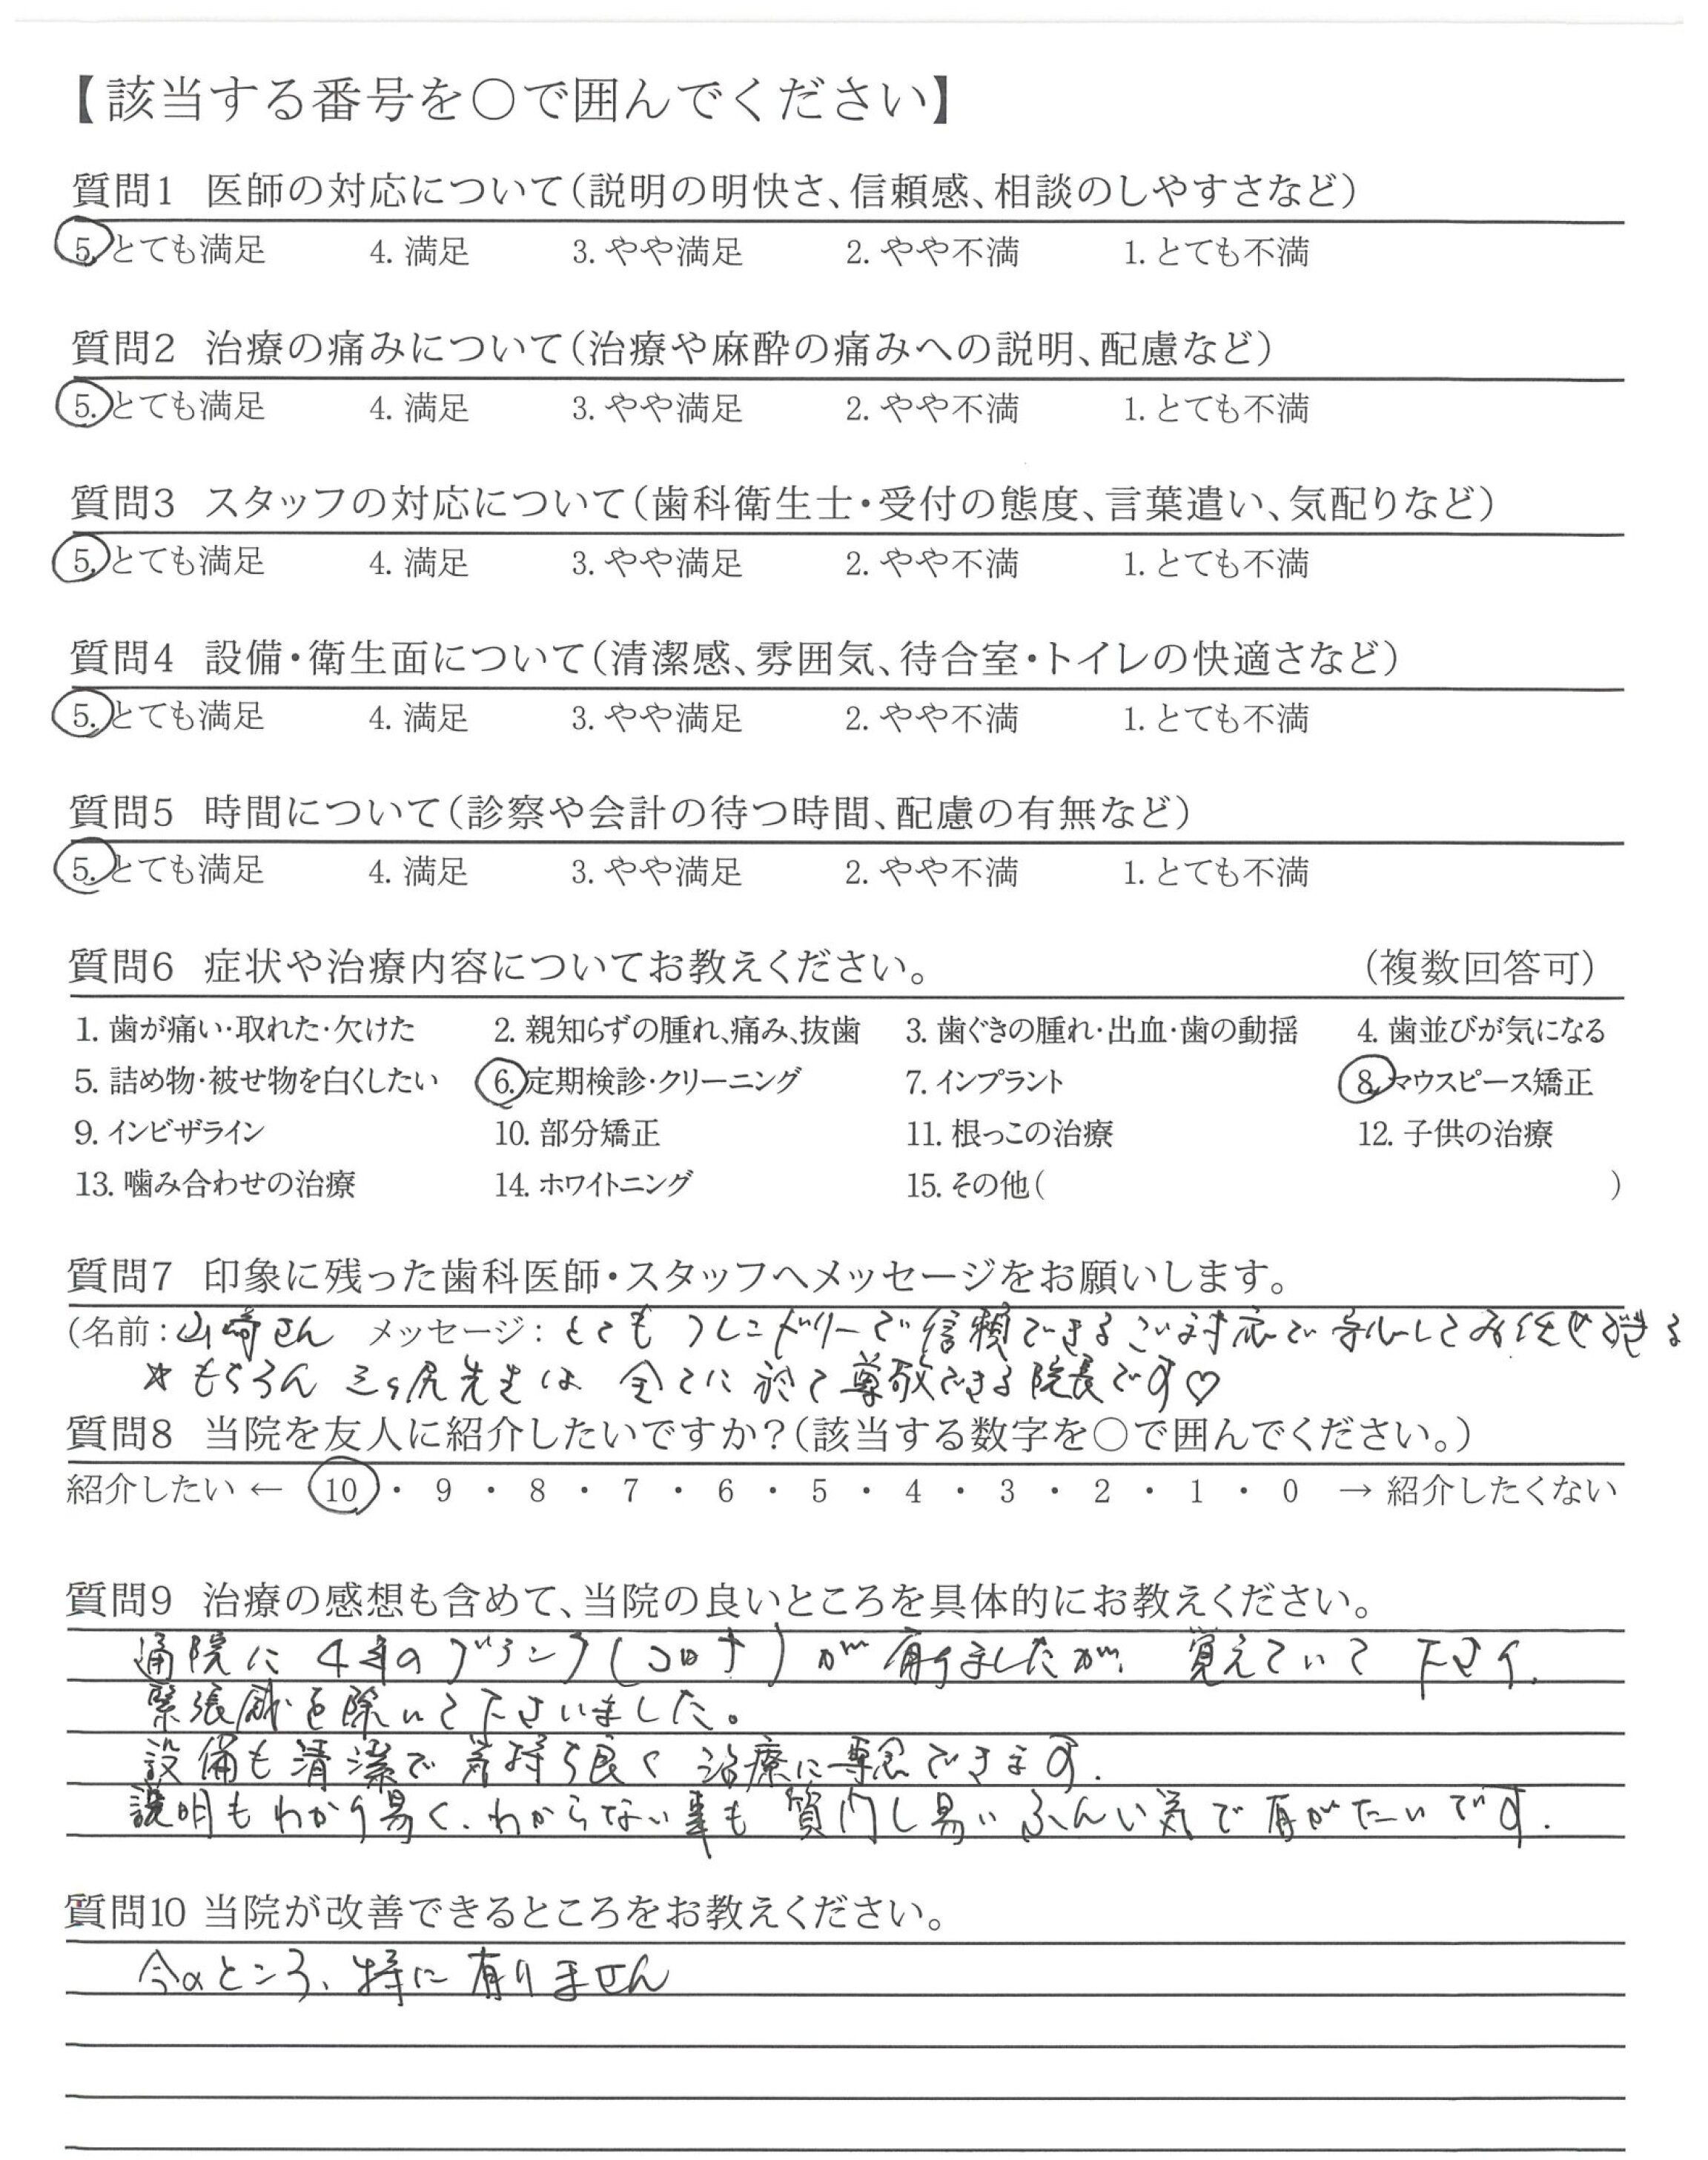 【該当する番号を〇で囲んでください】
質問1 医師の対応について(説明の明快さ、信頼感、相談のしやすさなど)
5. とても満足 4. 満足 3. やや満足 2. やや不満 1. とても不満
質問2 治療の痛みについて(治療や麻酔の痛みへの説明、配慮など)
5. とても満足 4. 満足 3. やや満足 2. やや不満 1. とても不満
質問3 スタッフの対応について(歯科衛生士・受付の態度、言葉遣い、気配りなど)
5. とても満足 4. 満足 3. やや満足 2. やや不満 1. とても不満
質問4 設備・衛生面について(清潔感、雰囲気、待合室・トイレの快適さなど)
5. とても満足 4. 満足 3. やや満足 2. やや不満 1. とても不満
質問5 時間について(診察や会計の待つ時間、配慮の有無など)
5. とても満足 4. 満足 3. やや満足 2. やや不満 1. とても不満
質問6 症状や治療内容についてお教えください。 (複数回答可)
1. 歯が痛い・取れた・欠けた 2. 親知らずの腫れ、痛み、抜歯 3. 歯ぐきの腫れ・出血・歯の動揺 4. 歯並びが気になる
5. 詰め物・被せ物を白くしたい 6. 定期検診・クリーニング 7. インプラント 8. マウスピース矯正
9. インビザライン 10. 部分矯正 11. 根っこの治療 12. 子供の治療
13. 噛み合わせの治療 14. ホワイトニング 15. その他( )
質問7 印象に残った歯科医師・スタッフへメッセージをお願いします。
(名前:山崎さん メッセージ:とてもフレンドリーで信頼できるご対応で安心してお任せできる
* もちろん 三ヶ尻先生は 全てに於て尊敬できる院長です♡
質問8 当院を友人に紹介したいですか?(該当する数字を〇で囲んでください。)
紹介したい ← 10 ・ 9 ・ 8 ・ 7 ・ 6 ・ 5 ・ 4 ・ 3 ・ 2 ・ 1 ・ 0 → 紹介したくない
質問9 治療の感想も含めて、当院の良いところを具体的にお教えください。
通院に4年のブランク(コロナ)が有りましたが、覚えていて下さり、
緊張感を除いて下さいました。
設備も清潔で気持ち良く治療に専念できます。
説明もわかり易く、わからない事も質問し易いふんい気で有がたいです。
質問10 当院が改善できるところをお教えください。
今のところ、特に有りません